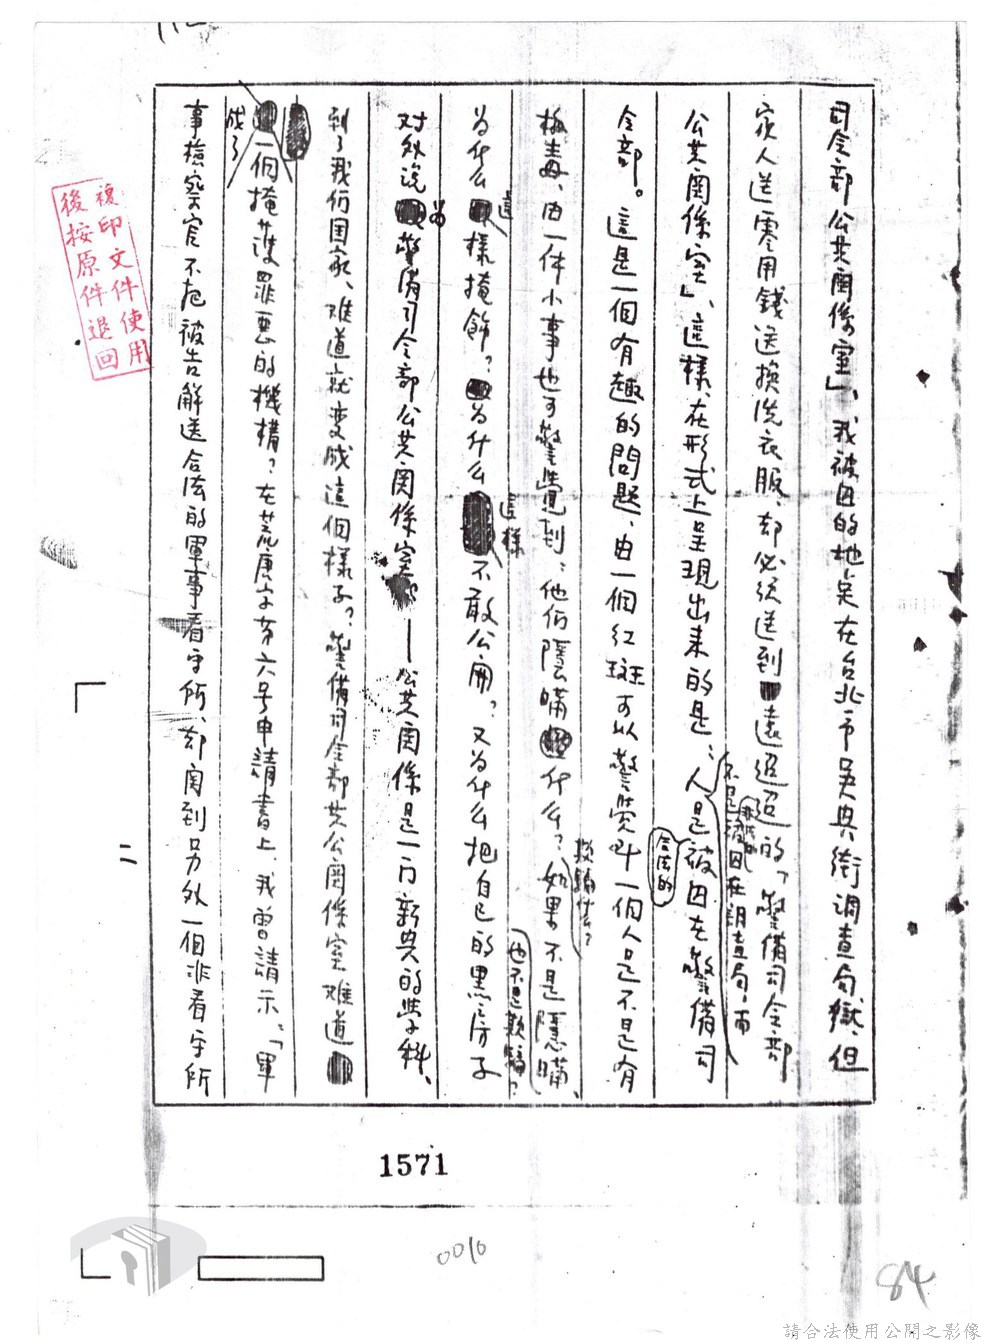 司令部公共関係室」、我被囚的地点在台北市吳興街調查局獄、但
家人送零用錢送換洗衣服、却必須送到遠迢迢的「警備司令部
不是被非法的囚在調查局、而
公共関係室」、這樣、在形式上呈現出来的是：人是被囚在警備司
合法的
令部。這是一個有趣的問題、由一個红斑可以警覚到一個人是不是有
欺騙什么？
梅毒、由一件小事也可警覺到：他們隱瞞什么？如果不是隱瞞、
也不是欺騙？
為什么這樣掩飾？為什么這樣不敢公開？又為什么把自己的黑房子
对外說為警備司令部公共関係室。—公共関係是一门新興的学科、
到了我們国家、难道就变成這個樣子？警備司令部共公関係室难道
成了
一個掩護罪惡的機構？在荒唐字第六号申請書上、我曾請示：「軍
事檢察官不把被告解送合法的軍事看守所、却関到另外一個非看守所
複印文件使用
後按原件退回
1571
0010
84
請合法使用公開之影像